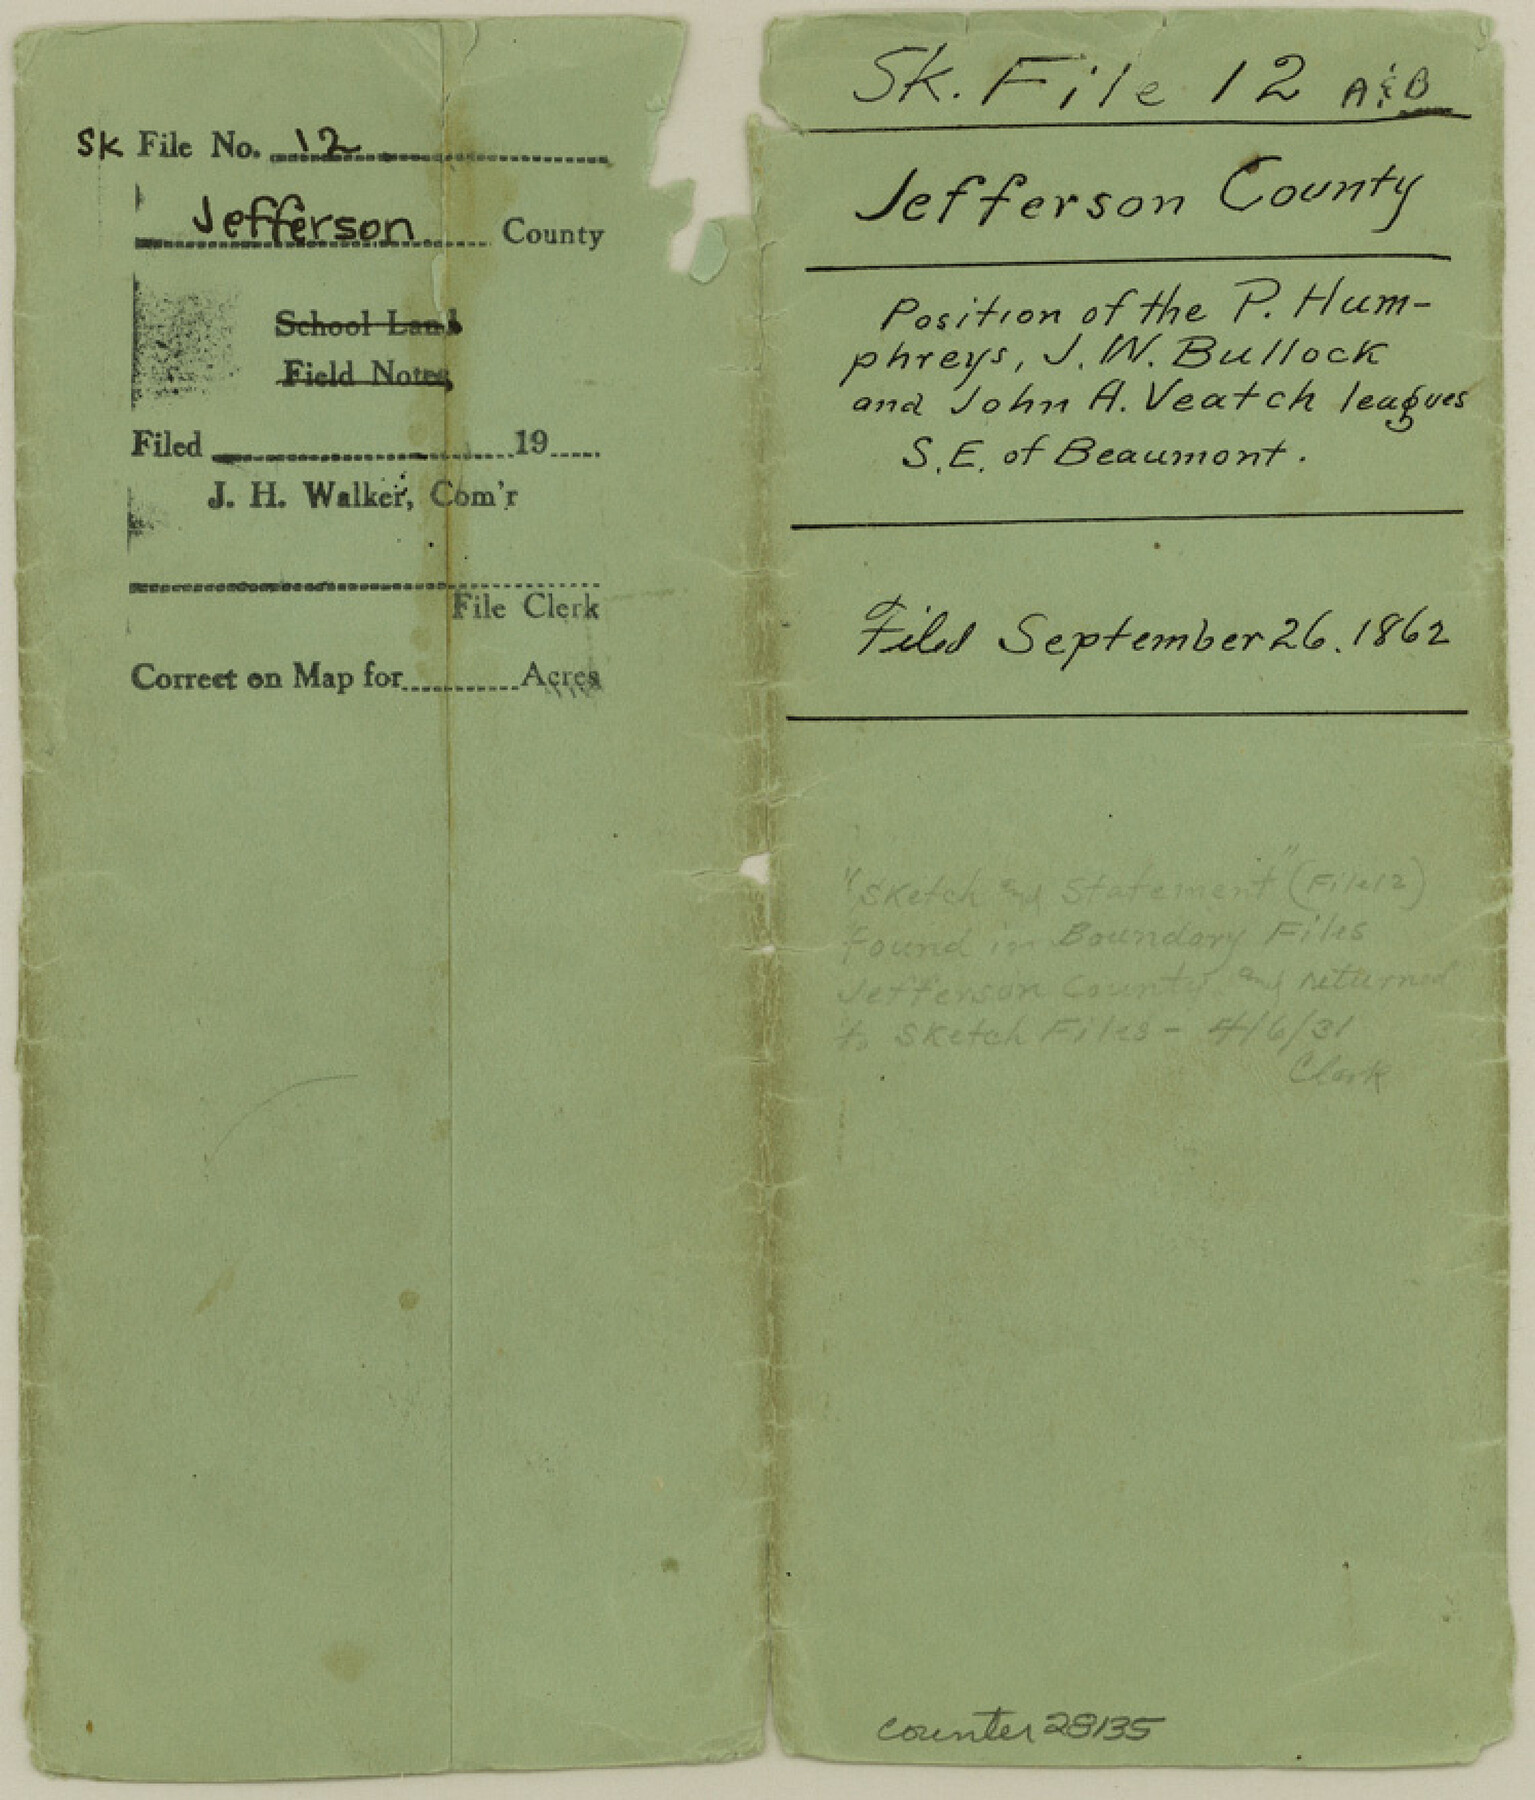 Sk File No. 12
Jefferson County
School Land
Field Notes
Filed 19
J. H. Walker, Com'r
File Clerk
Correct on Map for Acres
Sk. File 12 A & B
Jefferson County
Position of the P. Hum-
phreys, J. W. Bullock
and John A. Veatch leagues
S.E. of Beaumont.
Filed September 26. 1862
"Sketch and Statement" (File 12)
found in Boundary Files
Jefferson County and returned
to Sketch Files - 4/6/31
Clark
counter 28135